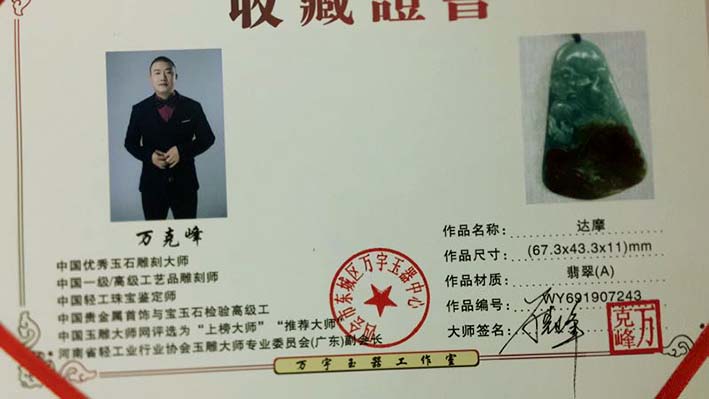 收藏證書
万克峰
中国优秀玉石雕刻大师
中国一级/高级工艺品雕刻师
中国轻工珠宝鉴定师
中国贵金属首饰与宝玉石检验高级工
中国玉雕大师网评选为“上榜大师”“推荐大师”
河南省轻工业行业协会玉雕大师专业委员会(广东)副会长
作品名称: 达摩
作品尺寸: (67.3x43.3x11)mm
作品材质: 翡翠(A)
作品编号: WY691907243
大师签名:
万克峰
四会市东城区万宇玉器中心
万宇玉器工作室